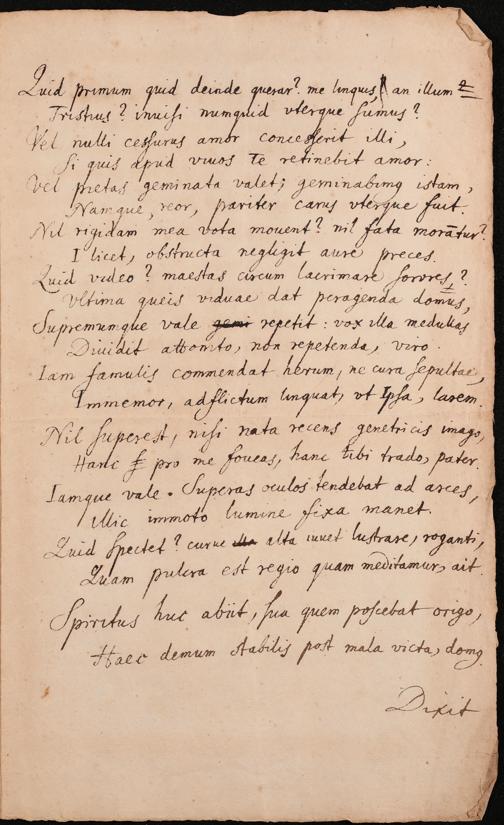 Quid primum quid deinde querar? me linquis, an illum
Tristius? invisi numquid vterque sumus?
Vel nulli cessurus amor concesserit illi,
Si quis apud viuos Te retinebit amor:
Vel pietas geminata valet; geminabimq istam,
Namque, reor, pariter carus vterque fuit.
Nil rigidam mea vota mouent? nil fata morātur?
I licet, obstructa negligit aure preces.
Quid video? maestas circum lacrimare sorores?
Vltima queis viduae dat peragenda domus,
Supremumque vale gemi repetit: vox illa medullas
Diuidit attonito, non repetenda, viro.
Iam famulis commendat herum, ne cura sepultae,
Immemor, adflictum linquat, vt Ipsa, larem.
Nil superest, nisi nata recens genetricis imago,
Hanc pro me foueas, hanc tibi trado, pater.
Iamque vale. Superas oculos tendebat ad arces,
Illic immoto lumine fixa manet.
Quid spectet? curue alta iuuet lustrare, roganti,
Quam pulcra est regio quam meditamur, ait.
Spiritus huc abiit, sua quem poscebat origo,
Haec demum stabilis post mala victa, domq.
Dixit